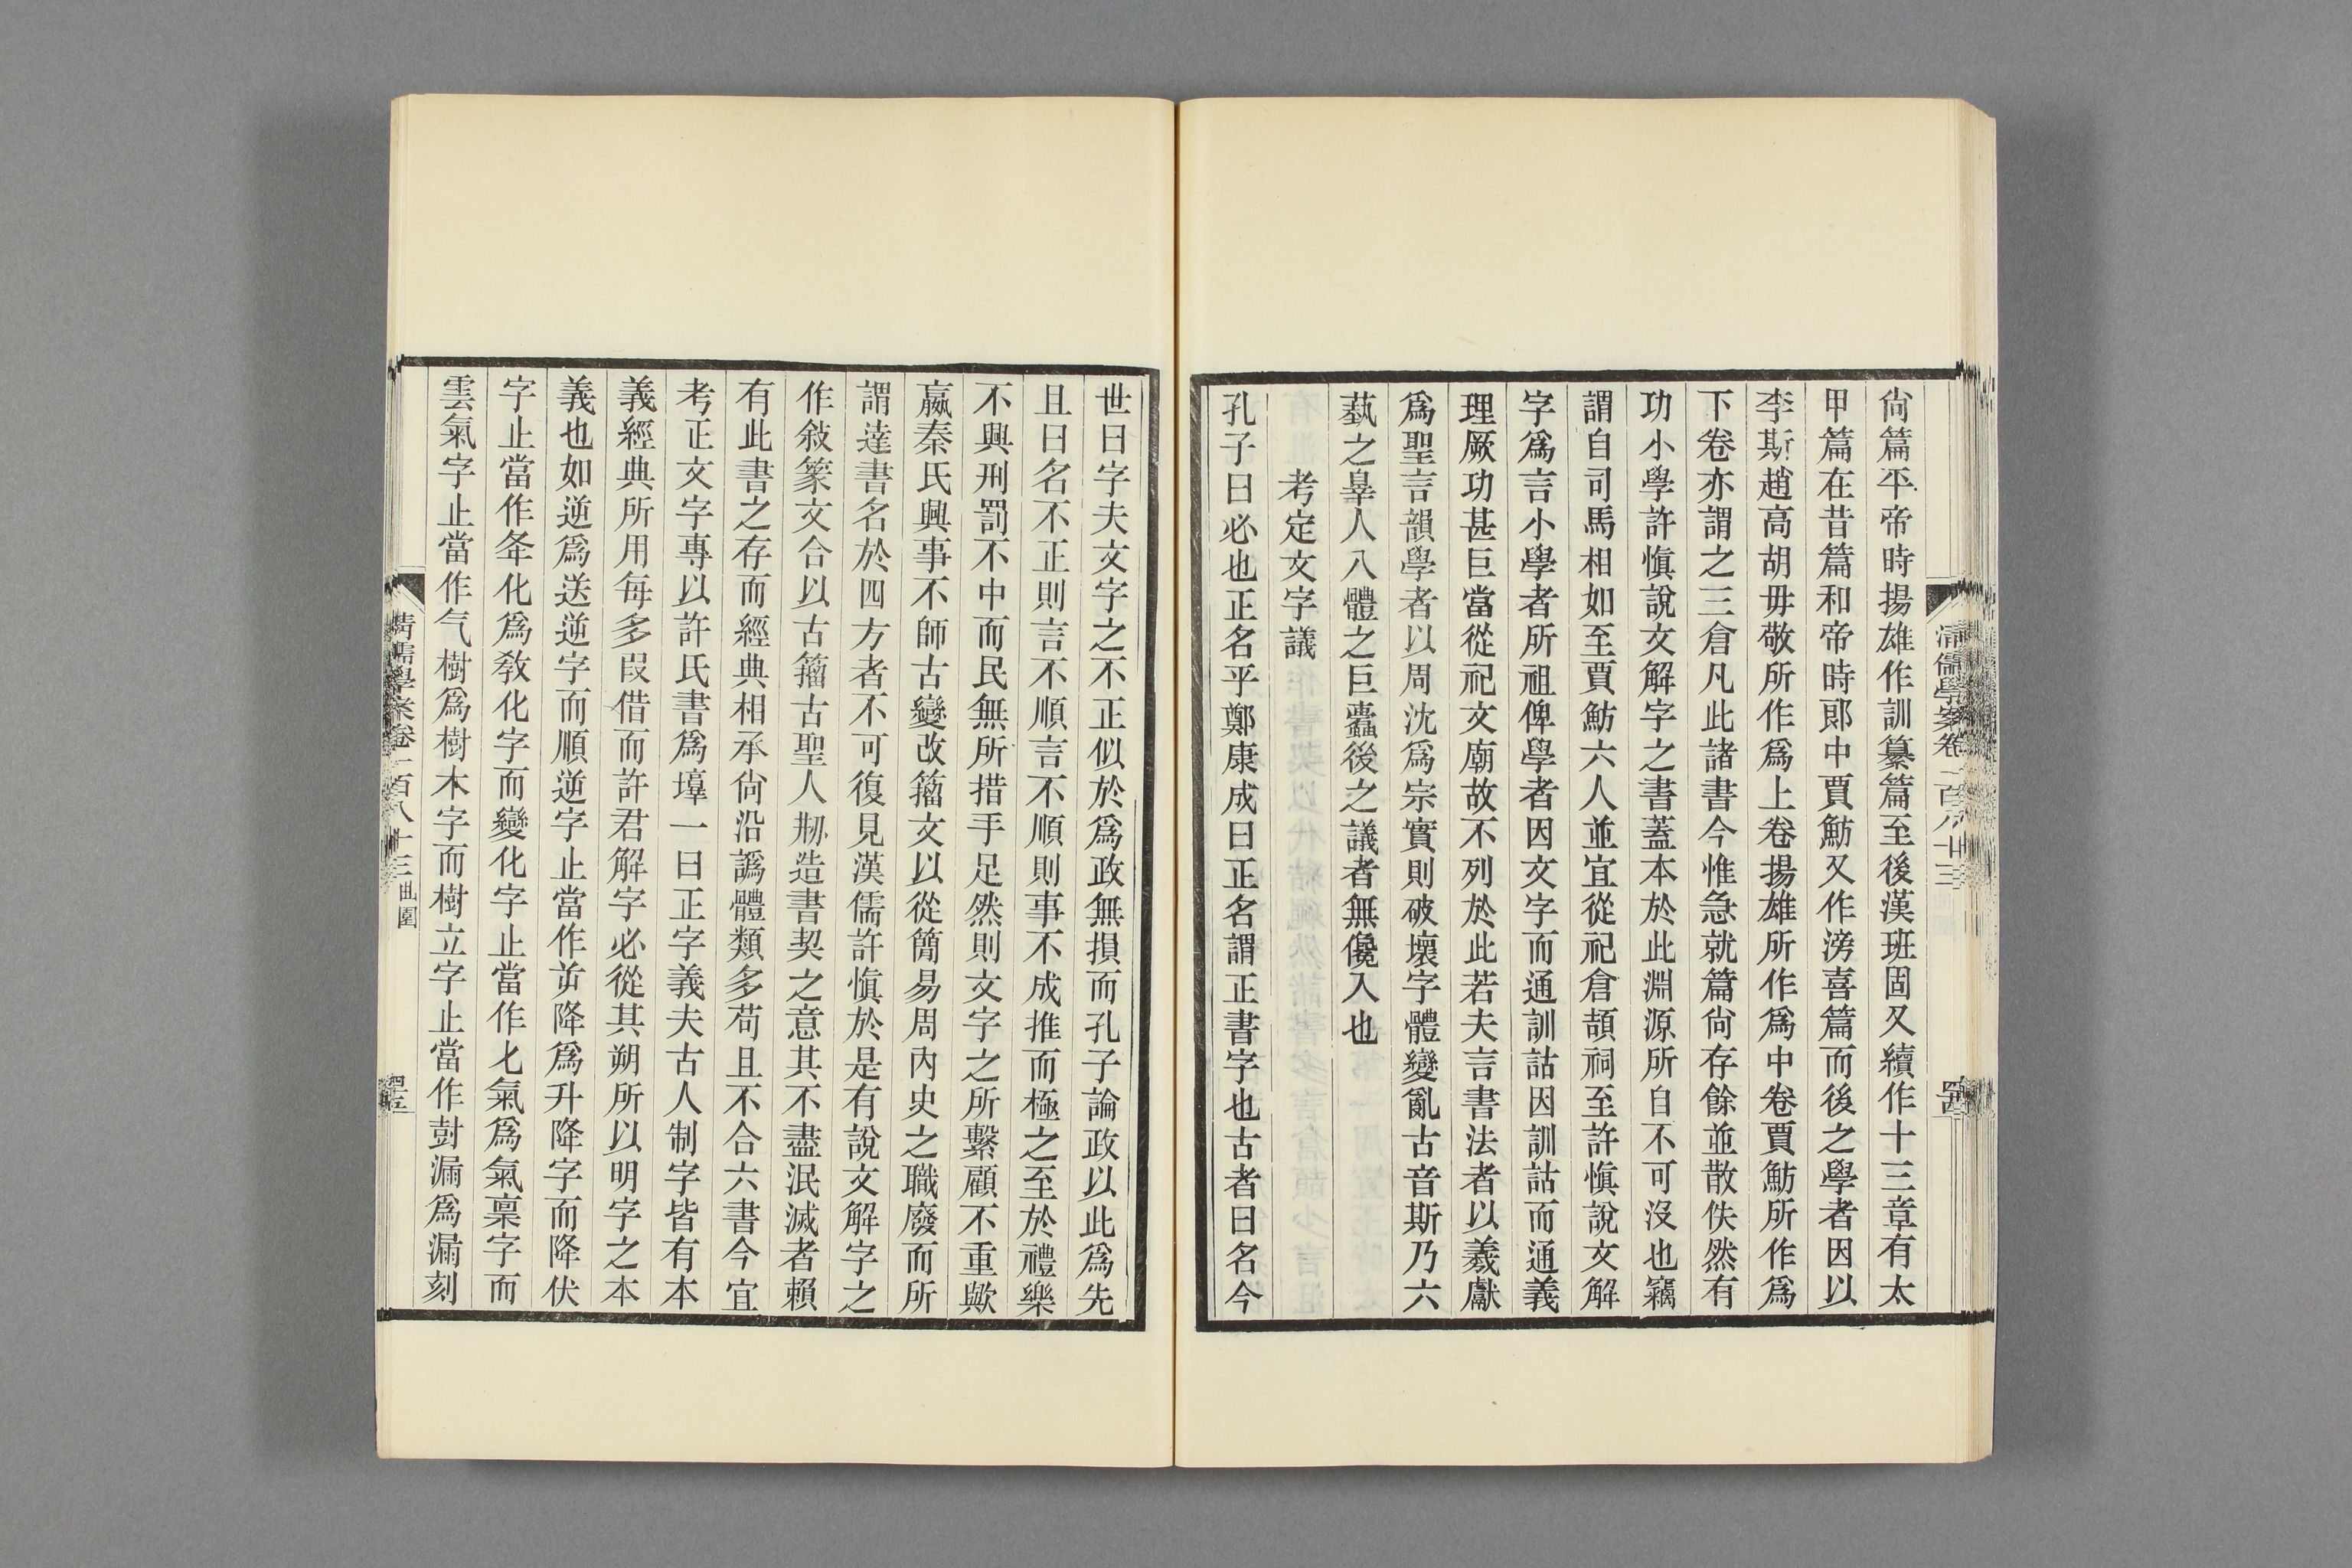 尙篇平帝時揚雄作訓纂篇至後漢班固又續作十三章有太
甲篇在昔篇和帝時郞中賈魴又作滂喜篇而後之學者因以
李斯趙高胡毋敬所作爲上卷揚雄所作爲中卷賈魴所作爲
下卷亦謂之三倉凡此諸書今惟急就篇尙存餘並散佚然有
功小學許愼說文解字之書蓋本於此淵源所自不可沒也竊
謂自司馬相如至賈魴六人並宜從祀倉頡祠至許愼說文解
字爲言小學者所祖俾學者因文字而通訓詁因訓詁而通義
理厥功甚巨當從祀文廟故不列於此若夫言書法者以羲獻
爲聖言韻學者以周沈爲宗實則破壞字體變亂古音斯乃六
蓺之辠人八體之巨蠹後之議者無儳入也
考定文字議
孔子曰必也正名乎鄭康成曰正名謂正書字也古者曰名今
世曰字夫文字之不正似於爲政無損而孔子論政以此爲先
且曰名不正則言不順言不順則事不成推而極之至於禮樂
不興刑罰不中而民無所措手足然則文字之所繫顧不重歟
嬴秦氏興事不師古變改籀文以從簡易周內史之職廢而所
謂達書名於四方者不可復見漢儒許愼於是有說文解字之
作敍篆文合以古籀古聖人刱造書契之意其不盡泯滅者賴
有此書之存而經典相承尙沿譌體類多苟且不合六書今宜
考正文字專以許氏書爲壿一曰正字義夫古人制字皆有本
義經典所用每多叚借而許君解字必從其朔所以明字之本
義也如逆爲送逆字而順逆字止當作屰降爲升降字而降伏
字止當作夅化爲敎化字而變化字止當作𠤎氣爲氣稟字而
雲氣字止當作气樹爲樹木字而樹立字止當作尌漏爲漏刻
清儒學案卷一百八十三 曲園